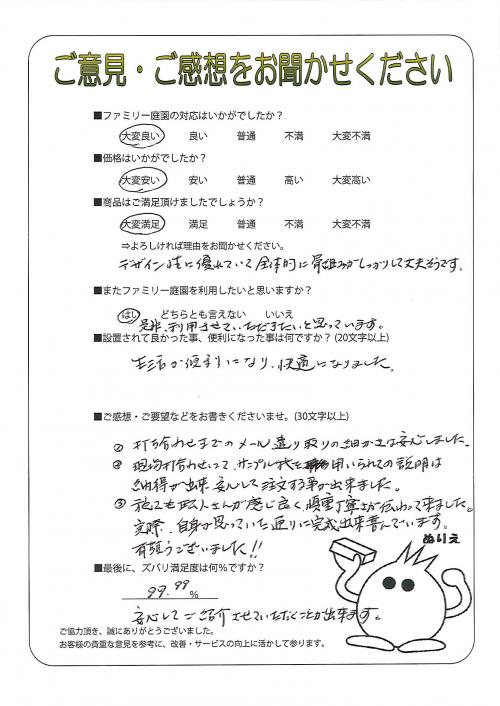 ご意見・ご感想をお聞かせください
■ファミリー庭園の対応はいかがでしたか？
大変良い 良い 普通 不満 大変不満
■価格はいかがでしたか？
大変安い 安い 普通 高い 大変高い
■商品はご満足頂けましたでしょうか？
大変満足 満足 普通 不満 大変不満
⇒よろしければ理由をお聞かせください。
デザイン性に優れていて全体的に骨組みがしっかりして丈夫そうです。
■またファミリー庭園を利用したいと思いますか？
はい どちらとも言えない いいえ
是非、利用させていただきたいと思っています。
■設置されて良かった事、便利になった事は何ですか？(20文字以上)
生活が便利になり、快適になりました。
■ご感想・ご要望などをお書きくださいませ。(30文字以上)
① 打ち合わせまでのメール遣り取りの細かさは安心しました。
② 現場打合わせにて、サンプル 用いられての説明は
納得が出来、安心して注文する事が出来ました。
③ 施工も職人さんが感じ良く、慎重丁寧さが伝わって来ました。
実際、自身が思っていた通りに完成出来喜んでいます。
有難うございました!!
ぬりえ
■最後に、ズバリ満足度は何％ですか？
99.99 %
安心してご紹介させていただくことが出来ます。
ご協力頂き、誠にありがとうございました。
お客様の貴重な意見を参考に、改善・サービスの向上に活かして参ります。